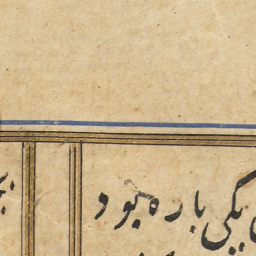 یکی باره بود